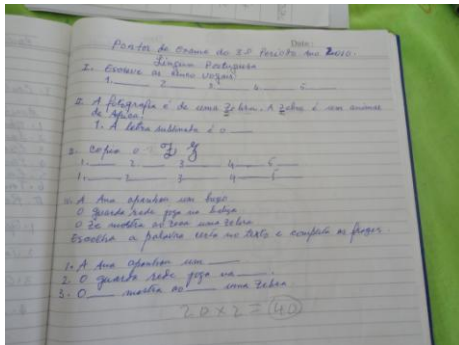 Date:
Pontos de Exame do 3º Periodo Ano 2010.
Lingua Portuguesa
I. Escreve as cinco vogais:
1. ___ 2 ___ 3 ___ 4 ___ 5 ___
II. A fotografia é de uma Zebra. A Zebra é um animal
de Africa.
1. A letra sublinhada é o ___
3. Copia o Z z
1. ___ 2. ___ 3 ___ 4 ___ 5 ___
1. ___ 2 ___ 3 ___ 4 ___ 5 ___
A Ana apanhou um
O guarda rede joga na
O Zé mostra ao uma zebra
Escolha a palavra certa no texto e completa as frases.
1. A Ana apanhou um ___
2. O guarda rede joga na ___.
3. O ___ mostra ao ___ uma zebra
20 x 2 = 40